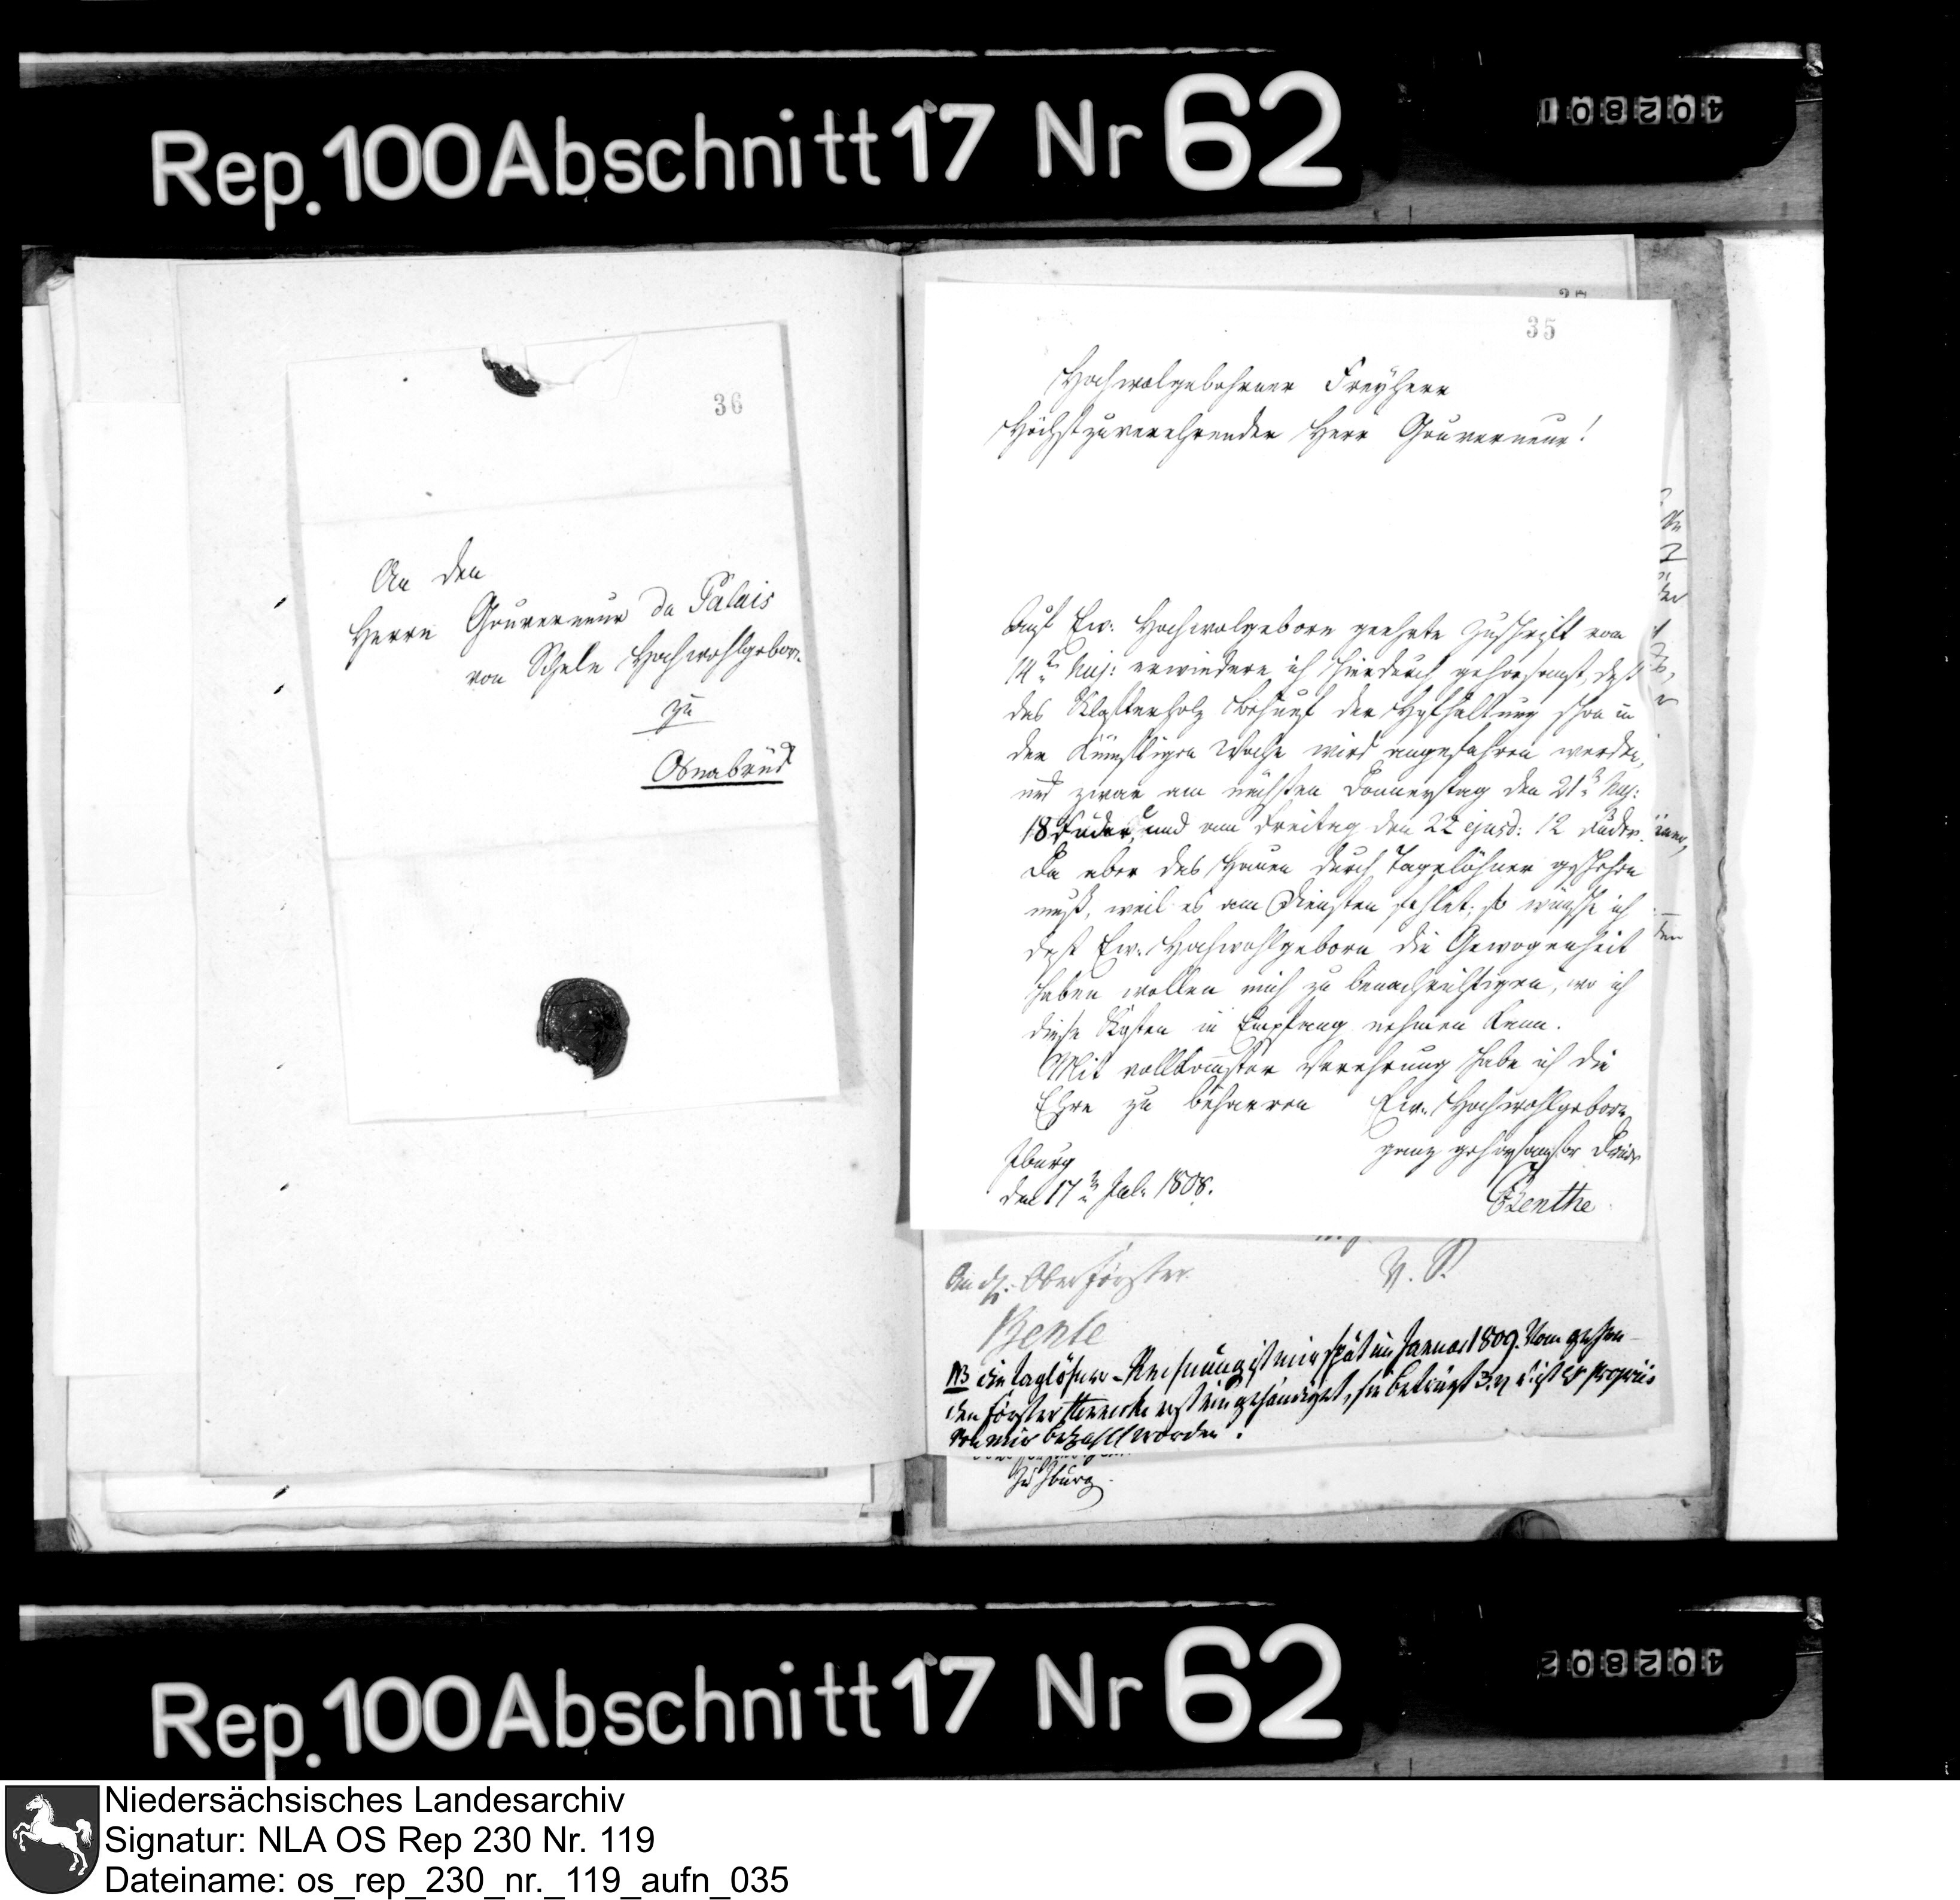 Rep. 100 Abschnitt 17 Nr 62
402801
36
An den
Herrn Gouverneur du Palais
von Schele Hochwohlgebor.
zu
Osnabrück
35
Hochwolgebohrner Freyherr
Höchstzuverehrender Herr Gouverneur!
Auf Ew. Hochwolgeborn geehrte Zuschrift vom
14t huj: erwiedere ich hierdurch gehorsamst, daß
das Klafterholz Behuef der Hofhaltung schon in
der künftigen Woche wird angefahren werden,
und zwar am nächsten Donnerstag den 21t huj:
18 Fuder, und am Freitag den 22 ejusd: 12 Fuder.
Da aber das Hauen durch Tagelöhner geschehen
muß, weil es am Diensten fehlet; so wünsche ich
daß Ew. Hochwohlgeborn die Gewogenheit
haben wollen mich zu benachrichtigen, wo ich
diese Kosten in Empfang nehmen kann.
Mit vollkomster Verehrung habe ich die
Ehre zu beharren Ew. Hochwohlgeborn
ganz gehorsamster Diener
Iburg
den 17t Jul. 1808.
Benthe
An dH. Oberförster
v. S.
Bente
NB die Taglöhner-Rechnung ist mir spät im Januar 1809. vom
den Förster erst eingehändiget, sie beträgt 3. ist ex propriis
von mir bezahlt worden.
zu Iburg.
Rep. 100 Abschnitt 17 Nr 62
402802
Niedersächsisches Landesarchiv
Signatur: NLA OS Rep 230 Nr. 119
Dateiname: os_rep_230_nr._119_aufn_035